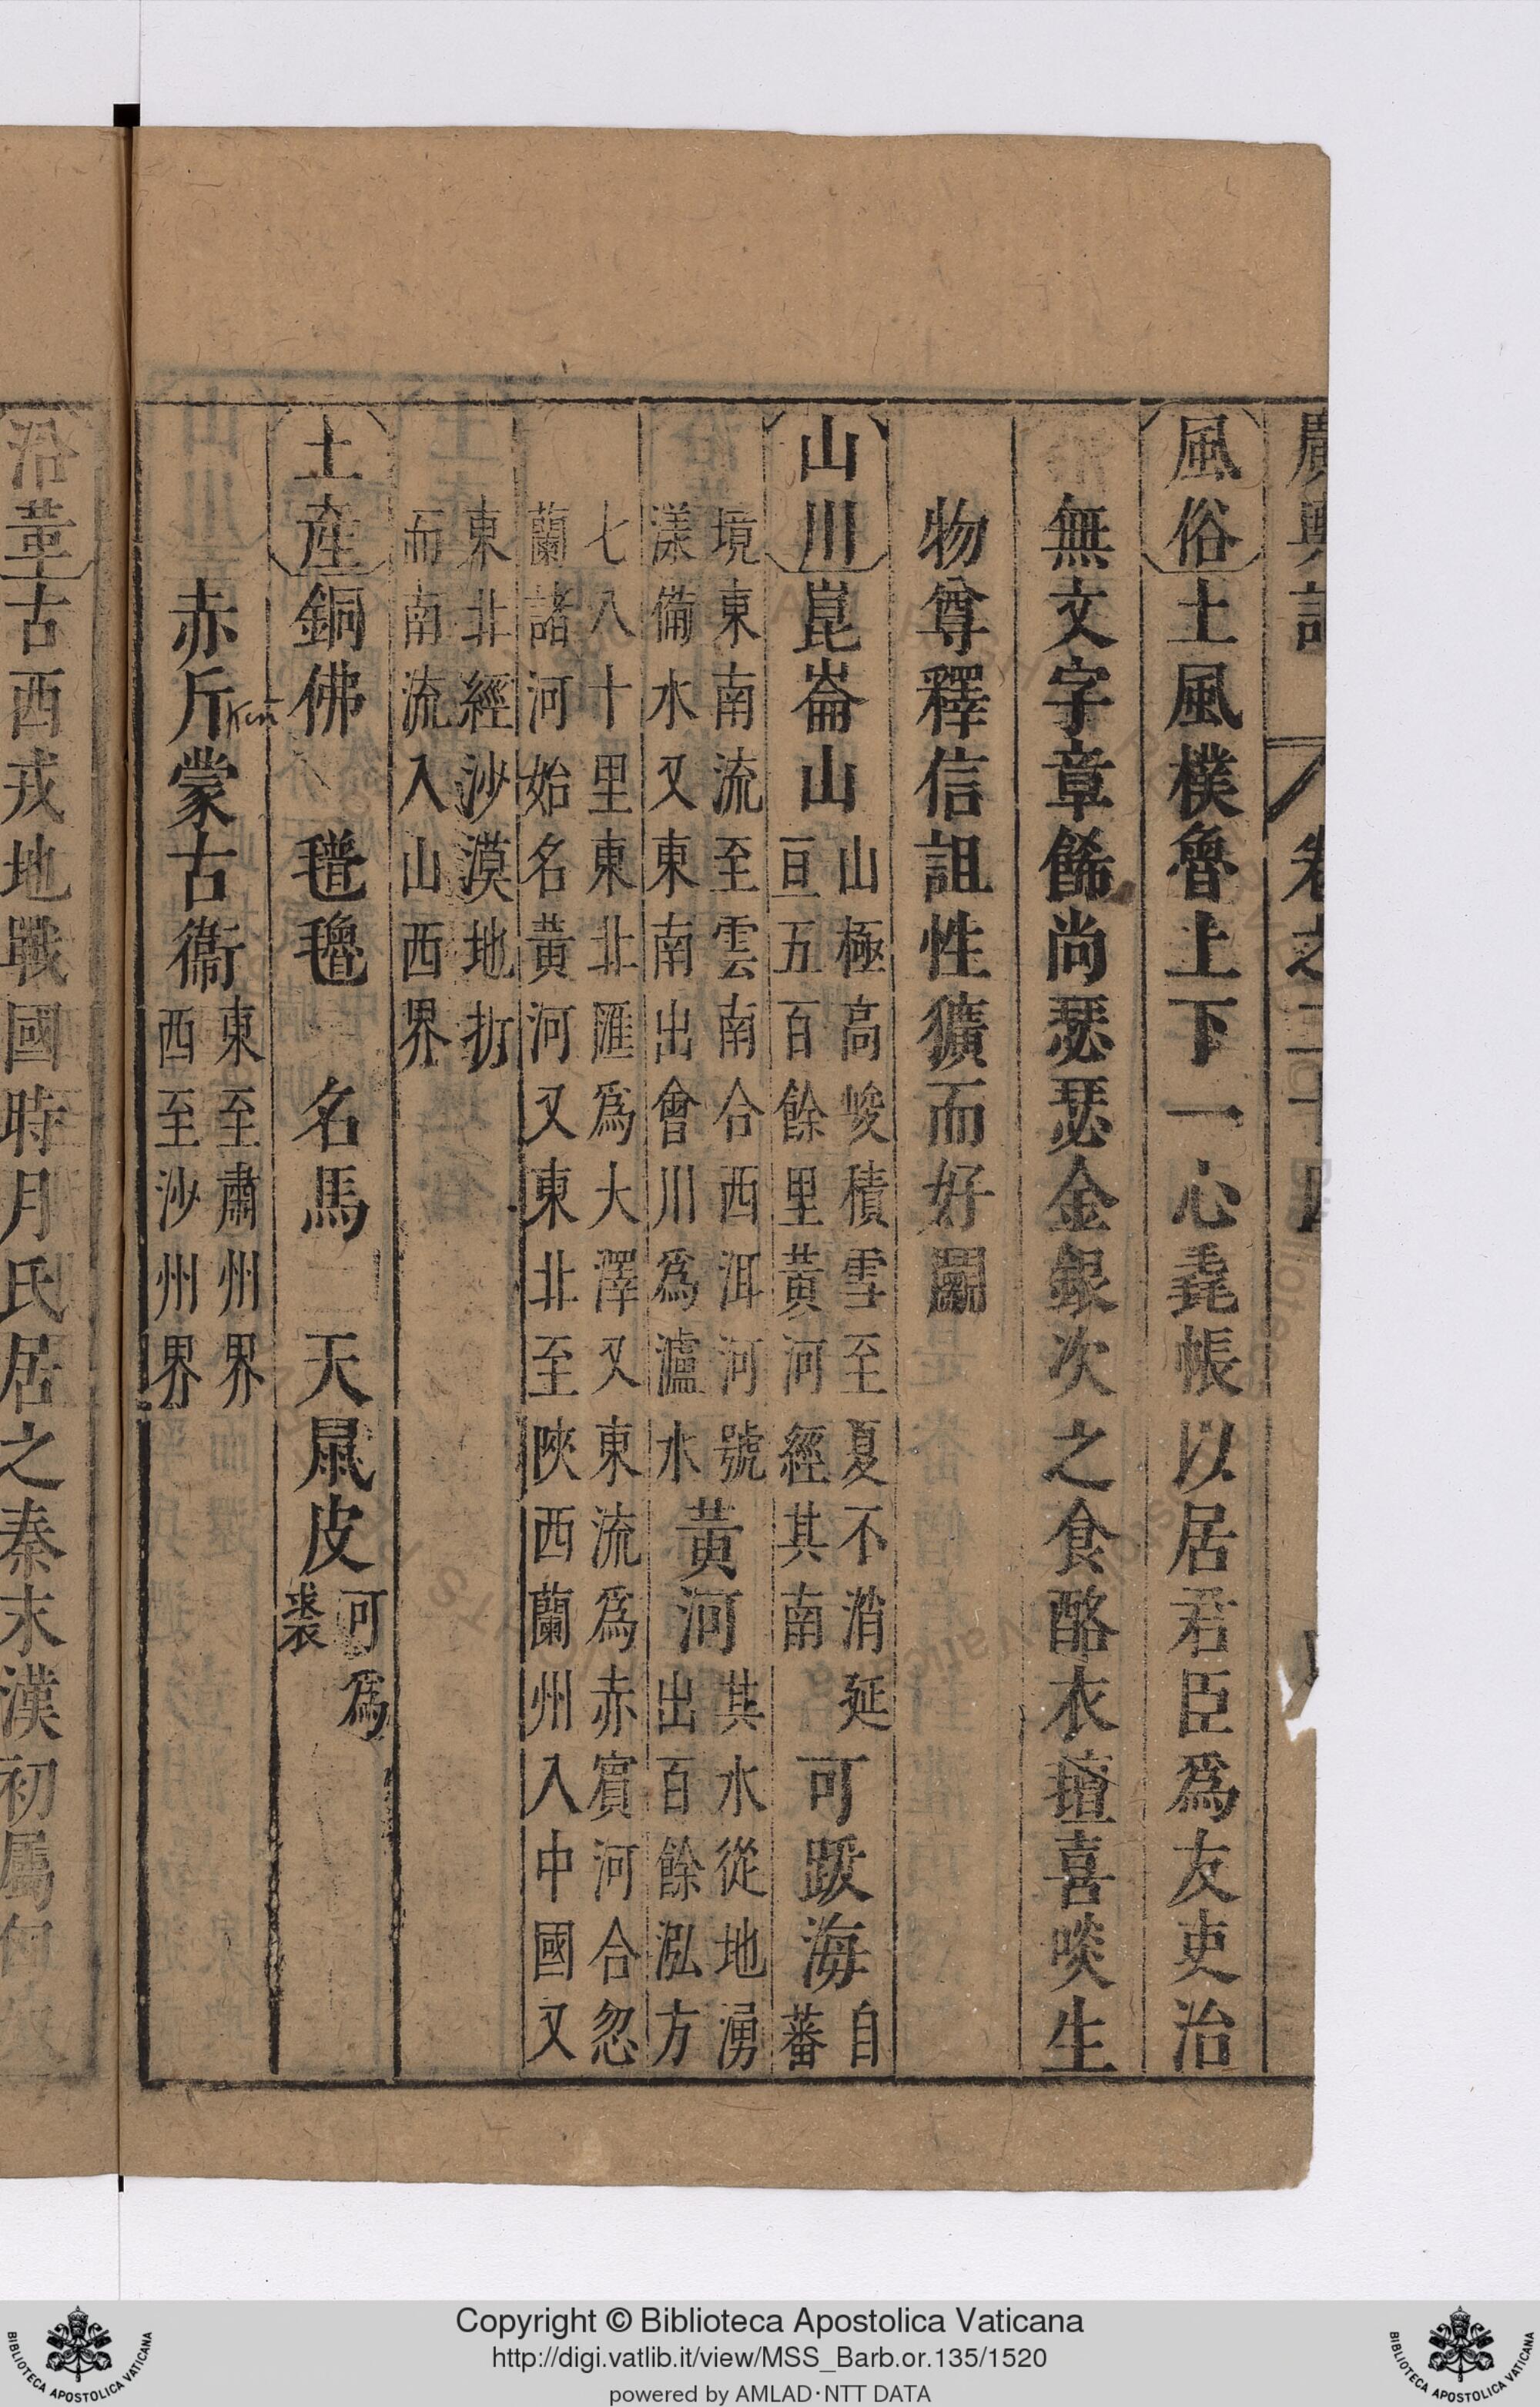 廣輿記 卷之二十四
風俗土風樸魯上下一心毳帳以居君臣爲友吏治
無文字章餙尚瑟瑟金銀次之食酪衣氊喜啖生
物尊釋信詛性獷而好鬬
山川崑崙山山極高峻積雪至夏不消延亘五百餘里黃河經其南可跋海自蕃
境東南流至雲南合西洱河號漾備水又東南出會川爲瀘水黃河其水從地湧出百餘泓方
七八十里東北匯爲大澤又東流爲赤賓河合忽蘭諸河始名黃河又東北至陝西蘭州入中國又
東北經沙漠地折而南流入山西界
土産銅佛 氆氌 名馬 天鼠皮可爲裘
赤斤蒙古衞東至肅州界西至沙州界
Kin
沿革古西戎地戰國時月氏居之秦末漢初屬匈奴
Copyright © Biblioteca Apostolica Vaticana
http://digi.vatlib.it/view/MSS_Barb.or.135/1520
powered by AMLAD·NTT DATA
BIBLIOTECA APOSTOLICA VATICANA
BIBLIOTECA APOSTOLICA VATICANA